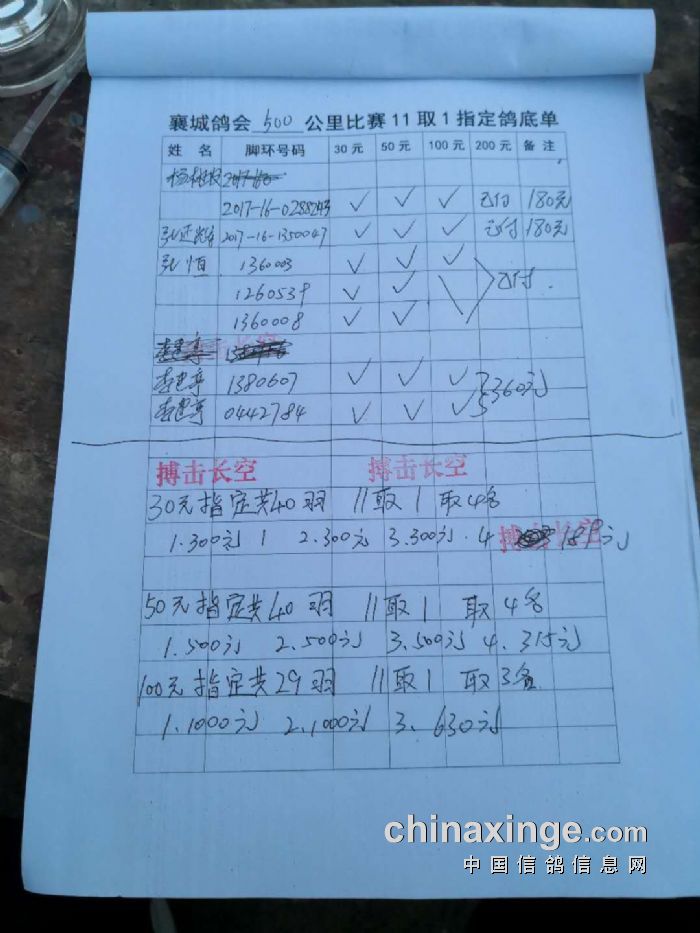 襄城鸽会 500 公里比赛 11 取 1 指定鸽底单
姓 名 脚环号码 30元 50元 100元 200元 备注
2017-16-0288243 ✓ ✓ ✓ 已付 180元
2017-16-1350047 ✓ ✓ ✓ 已付 180元
张恒 1360003 ✓ ✓ ✓
1260539 ✓ ✓ 已付.
1360008 ✓ ✓
1380607 ✓ ✓ ✓ 360元
0442784 ✓ ✓ ✓
搏击长空 搏击长空
30元指定共40羽 11取1 取4名
1.300元 2.300元 3.300元.4 189元
搏击长空
50元指定共40羽 11取1 取4名
1.500元 2.500元 3.500元 4.315元
100元指定共29羽 11取1 取3名
1.1000元 2.1000元 3.630元
chinaxinge.com
中国信鸽信息网